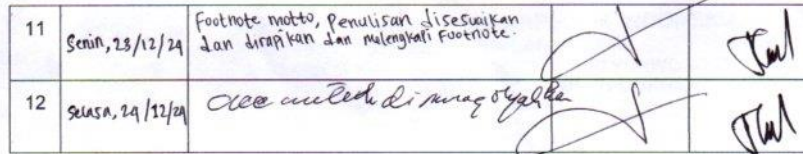 11
Senin, 23/12/24
Footnote motto, penulisan disesuaikan
dan dirapikan dan melengkapi Footnote.
12
Selasa, 24/12/24
acc untuk di munaqosyahkan